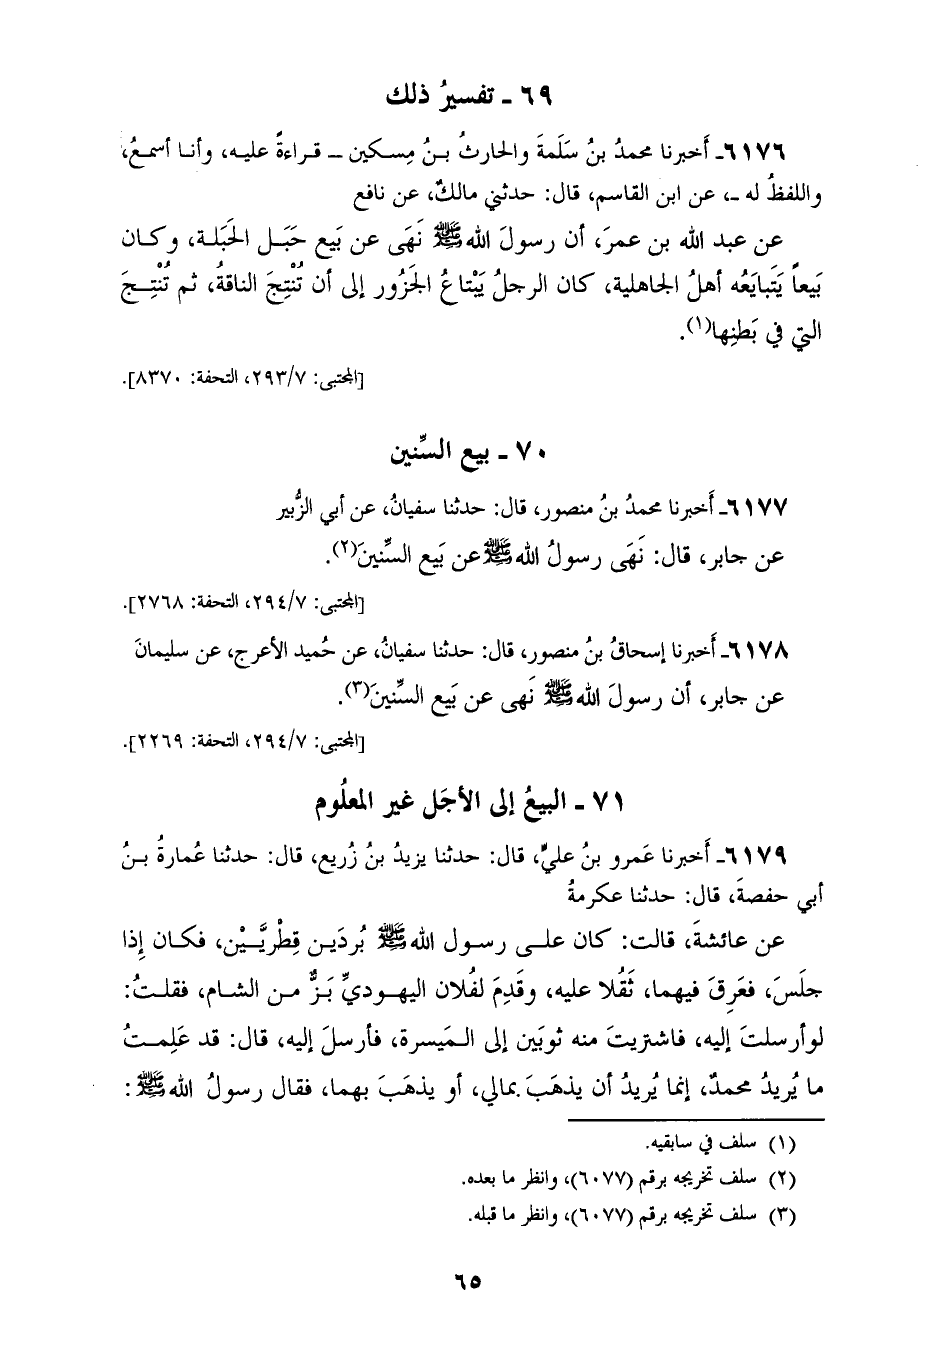 ٦٩ ـ تفسيرُ ذلك
٦١٧٦ـ أَخبرنا محمدُ بنُ سَلَمةَ والحارثُ بـنُ مِسـكين ــ قـراءةً عليـه، وأنـا أسمـعُ،
واللفظُ له ـ، عن ابن القاسم، قال: حدثني مالكٌ، عن نافع
عن عبد الله بن عمرَ، أن رسولَ الله ﷺ نَهَى عن بَيع حَبَـل الحَبَلـة، وكـان
بَيعاً يَتَبايَعُه أهلُ الجاهلية، كان الرجلُ يَبْتاعُ الجَزُور إلى أن تُنْتِجَ الناقةُ، ثم تُنْتِـجَ
التي في بَطنِها(١).
[المجتبى: ٢٩٣/٧، التحفة: ٨٣٧٠].
٧٠ ـ بيع السِّنين
٦١٧٧ـ أَخبرنا محمدُ بنُ منصور، قال: حدثنا سفيانُ، عن أبي الزُّبير
عن جابر، قال: نَهَى رسولُ الله ﷺ عن بَيع السِّنينَ(٢).
[المجتبى: ٢٩٤/٧، التحفة: ٢٧٦٨].
٦١٧٨ـ أَخبرنا إسحاقُ بنُ منصور، قال: حدثنا سفيانُ، عن حُميد الأعرج، عن سليمانَ
عن جابر، أن رسولَ الله ﷺ نَهى عن بَيع السِّنينَ(٣).
[المجتبى: ٢٩٤/٧، التحفة: ٢٢٦٩].
٧١ ـ البيعُ إلى الأجَل غير المعلُوم
٦١٧٩ـ أَخبرنا عَمرو بنُ عليٍّ، قال: حدثنا يزيدُ بنُ زُريع، قال: حدثنا عُمارةُ بـنُ
أبي حفصةَ، قال: حدثنا عكرمةُ
عن عائشةَ، قالت: كان علـى رسـول الله ﷺ بُردَيـن قِطْرِيَّـيْن، فكـان إذا
جلَسَ، فعَرِقَ فيهما، ثَقُلا عليه، وقَدِمَ لفُلان اليهـوديِّ بَـزٌّ مـن الشـام، فقلـتُ:
لو أرسلتَ إليه، فاشتريتَ منه ثوبَين إلى المَيسرة، فأرسلَ إليه، قال: قد عَلِمـتُ
ما يُريدُ محمدٌ، إنما يُريدُ أن يذهَبَ بمالي، أو يذهَبَ بهما، فقال رسولُ الله ﷺ:
(١) سلف في سابقيه.
(٢) سلف تخريجه برقم (٦٠٧٧)، وانظر ما بعده.
(٣) سلف تخريجه برقم (٦٠٧٧)، وانظر ما قبله.
٦٥